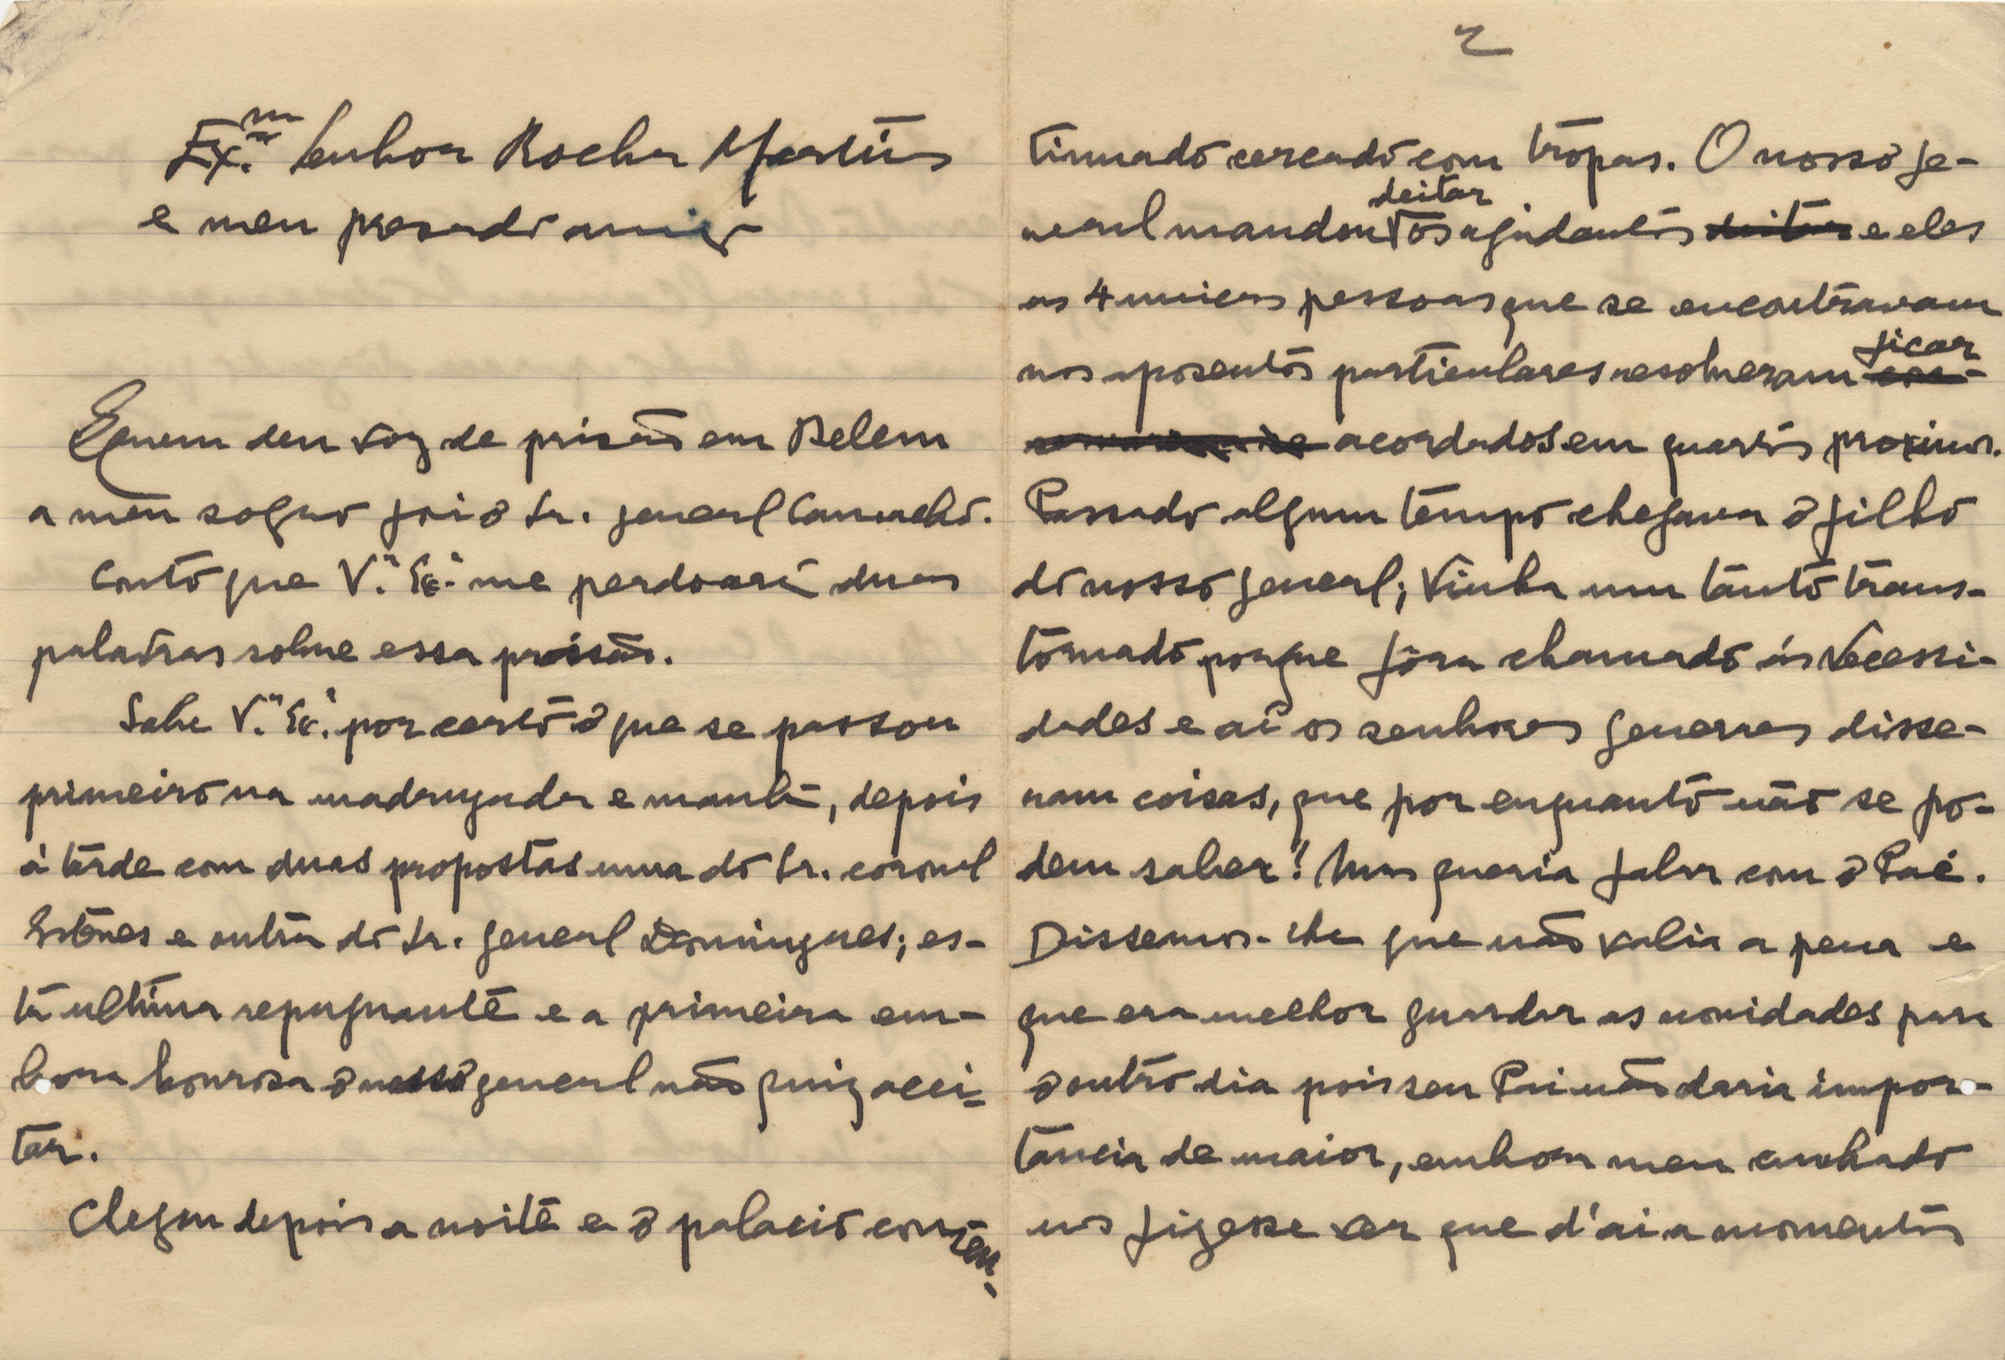 Ex.mo Senhor Rocha Martins
e meu presado amigo
Quem deu voz de prisão em Belem
a meu sogro foi o Sr. general Camacho.
Conto que V.ª Ex.ª me perdoará duas
palavras sobre essa prisão.
Sabe V.ª Ex.ª por certo o que se passou
primeiro na madrugada e manhã, depois
á tarde com duas propostas uma do Sr. coronel
Esteves e outra do Sr. general Domingues; es-
ta ultima repugnante e a primeira em-
bora honrosa o nosso general não quiz acei-
tar.
Chegou depois a noite e o palacio con-
2
tinuado cercado com tropas. O nosso ge-
neral mandou deitar os ajudantes deitar e eles
as 4 unicas pessoas que se encontravam
nos aposentos particulares resolveram ficar
acordados em quartos proximos.
Passado algum tempo chegava o filho
do nosso general; vinha um tanto trans-
tornado porque fôra chamado ás Necessi-
dades e aí os senhores generaes disse-
ram coisas, que por enquanto não se po-
dem saber! Mas queria falar com o Paé.
Dissemos-lhe que não valia a pena e
que era melhor guardar as novidades para
o outro dia pois seu Pai não daria impor-
tancia de maior, embora meu cunhado
nos fizesse ver que d'ai a momentos